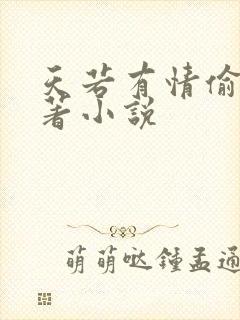 天若有情偷
著小説
萌萌哒鍾孟通